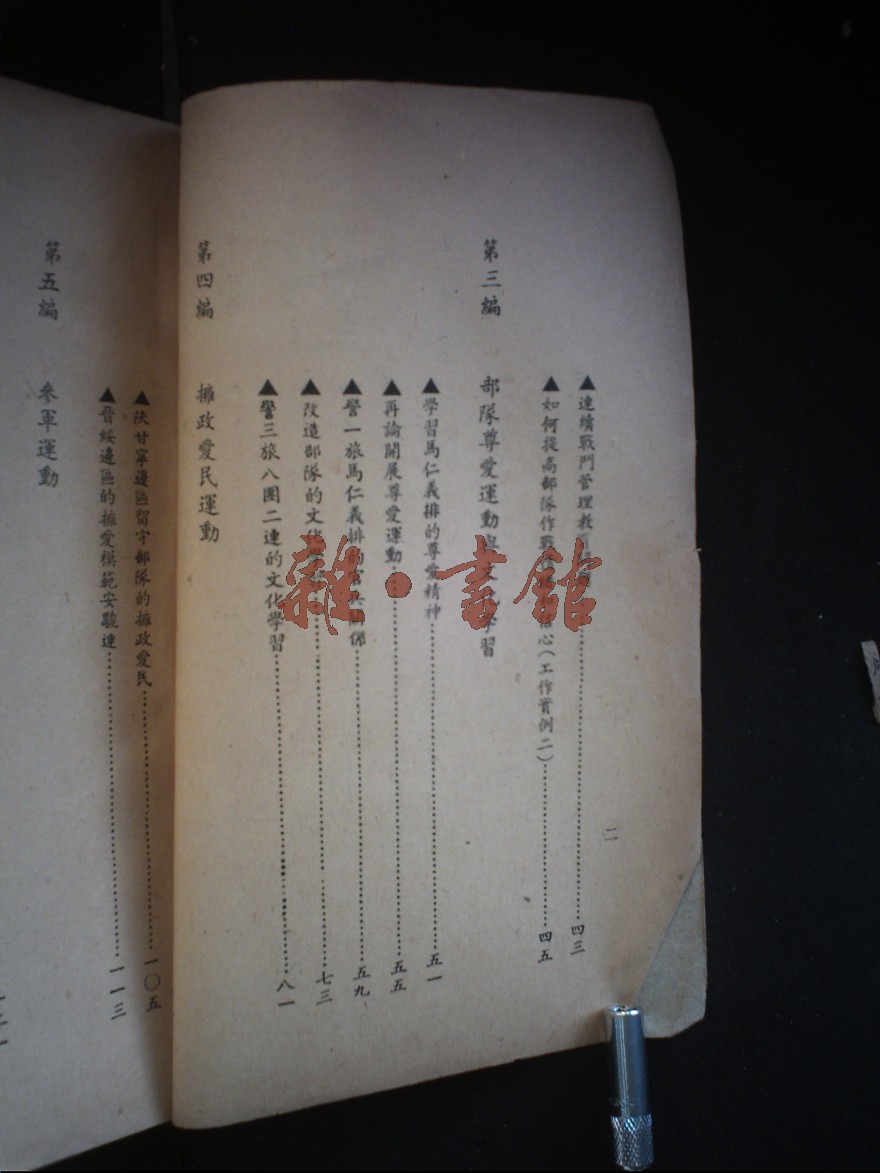 ▲連續戰鬥管理教……四三
▲如何提高部隊作戰信心(工作實例二)……四五
第三編 部隊尊愛運動與文化學習
▲學習馬仁義排的尊愛精神……五一
▲再論開展尊愛運動……五五
▲警一旅馬仁義排的官兵關係……五九
▲改造部隊的文化……七三
▲警三旅八團二連的文化學習……八一
第四編 擁政愛民運動
二
▲陝甘寧邊區留守部隊的擁政愛民……一〇五
▲晉綏邊區的擁愛模範安駿連……一一三
第五編 參軍運動
雜·書館